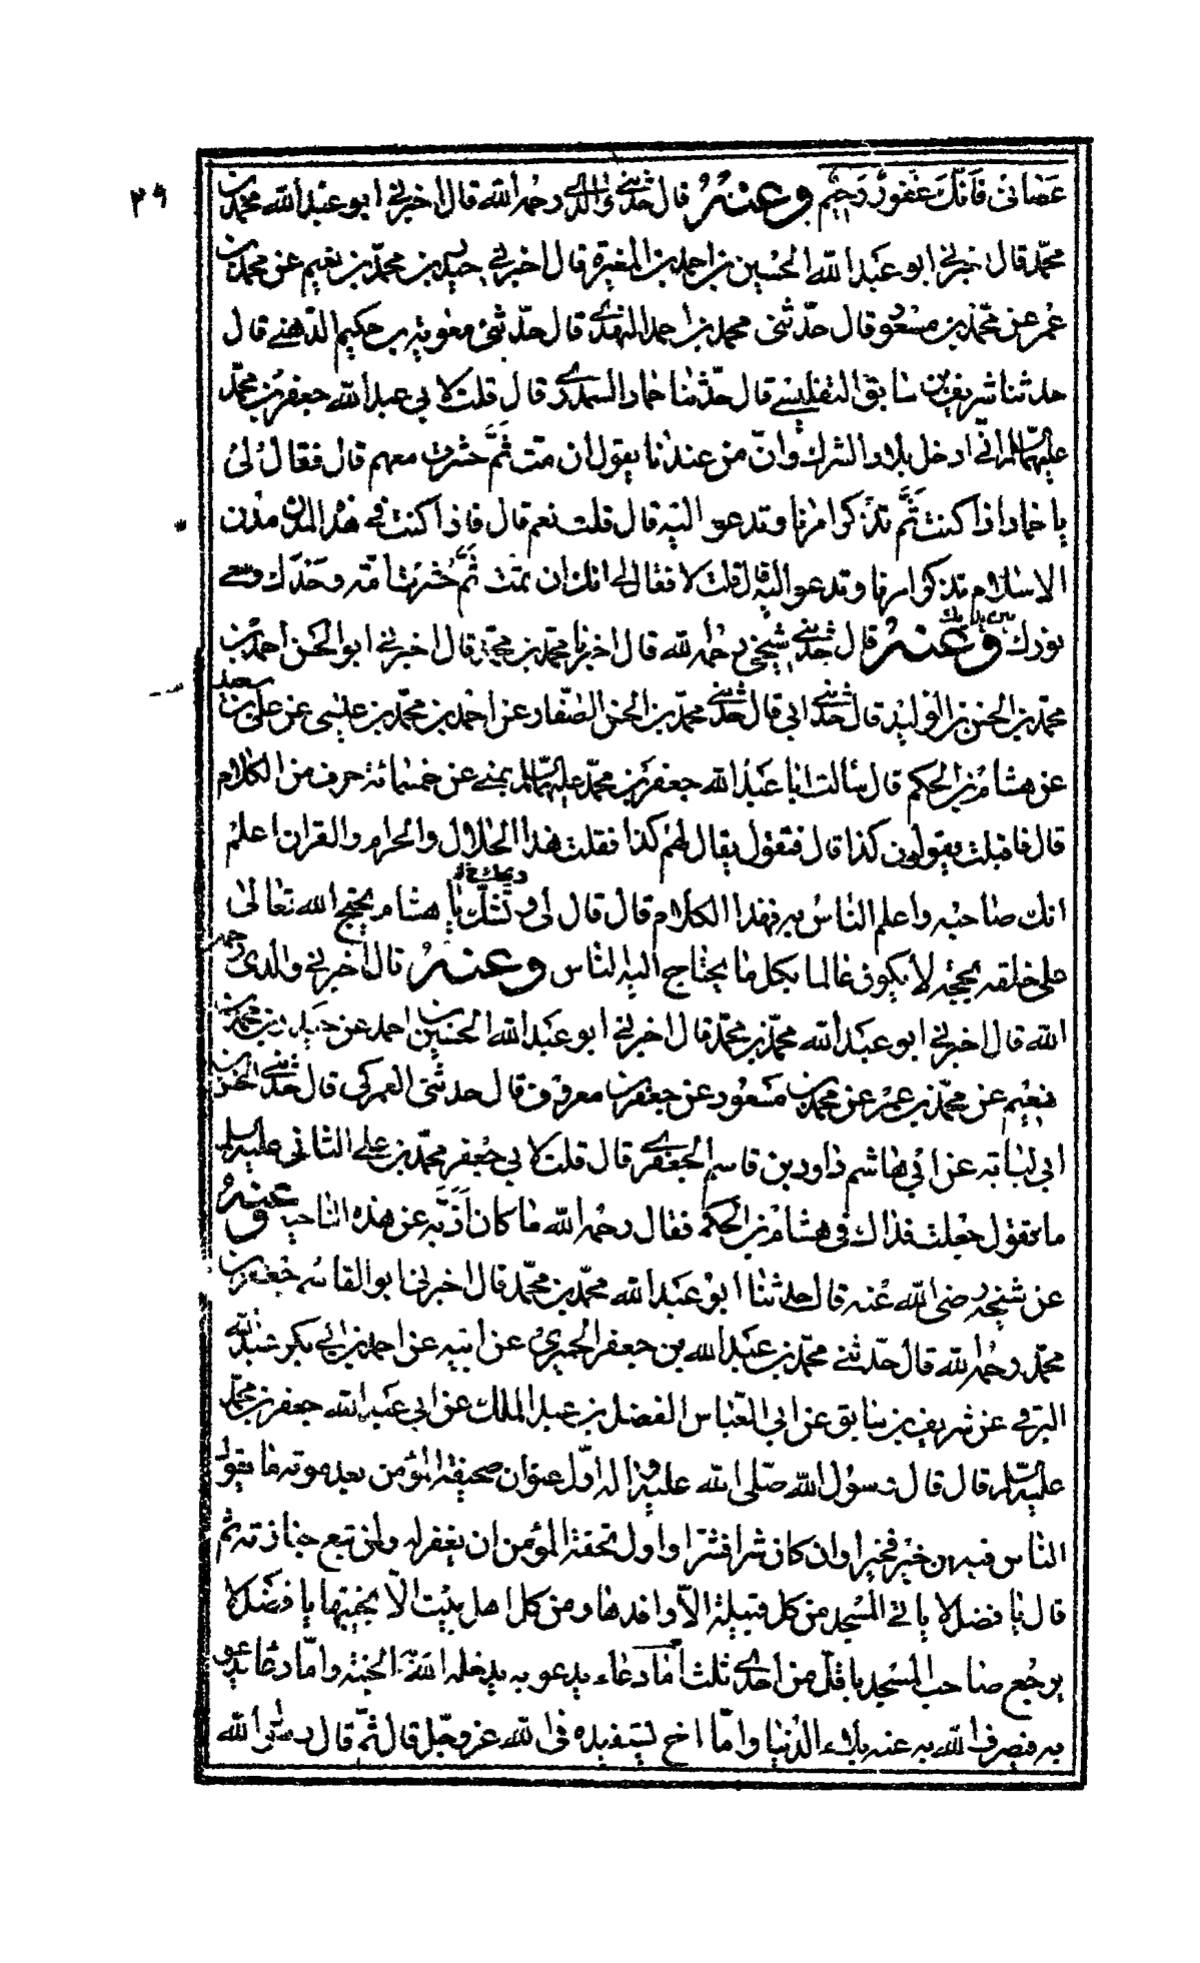 ٢٩
عصاني فانك غفور رحيم وعنه قال حدثني والدي رحمه الله قال اخبرني ابو عبد الله محمد بن
محمد قال اخبرني ابو عبد الله الحسين بن احمد بن المغيرة قال اخبرني حيدر بن محمد بن نعيم عن محمد بن
عمر عن محمد بن مسعود قال حدثنى محمد بن احمد النهدي قال حدثني معوية بن حكيم الدهني قال
حدثنا شريف بن سابق التفليسي قال حدثنا حماد السمدري قال قلت لابي عبد الله جعفر بن محمد
عليهما السلام اني ادخل بلاد الشرك وان من عندنا يقول ان مت ثم حشرت معهم قال فقال لي
يا حماد اذا كنت ثم تذكر امرنا وتدعو اليه قال قلت نعم قال فاذا كنت في هذه المدن مدن
الاسلام تذكر امرنا وتدعو اليه قال قلت لا فقال لي انك ان تمت ثم حشرت امة وحدك وسعى
نورك بين يديك وعنه قال حدثني شيخي رحمه الله قال اخبرنا محمد بن محمد قال اخبرني ابو الحسن احمد بن
محمد بن الحسن بن الوليد قال حدثني ابي قال حدثني محمد بن الحسن الصفار عن احمد بن محمد بن عيسى عن علي بن سعيد
عن هشام بن الحكم قال سألت ابا عبد الله جعفر بن محمد عليهما السلام بمنى عن خمسمائة حرف من الكلام
قال فاقبلت يقولون كذا قال فتقول يقال لهم كذا فقلت هذا الحلال والحرام والقران اعلم
انك صاحبه واعلم الناس به فهذا الكلام قال قال لي وتشك يا هشام يحتج الله تعالى
على خلقه بحجة لا يكون عالما بكل ما يحتاج اليه الناس وعنه قال اخبرني والدي رحمه
الله قال اخبرني ابو عبد الله محمد بن محمد قال اخبرني ابو عبد الله الحسين بن احمد عن حيدر بن محمد بن
نعيم عن محمد بن عمر عن محمد بن مسعود عن جعفر بن معروف قال حدثني العمركي قال حدثني الحسن بن
ابي لبابة عن ابي هاشم داود بن قاسم الجعفري قال قلت لابي جعفر محمد بن علي الثاني عليه السلم
ما تقول جعلت فداك في هشام بن الحكم فقال رحمه الله ما كان اذبه عن هذه الناحية وعنه
عن شيخه رضي الله عنه قال حدثنا ابو عبد الله محمد بن محمد قال اخبرنا ابو القاسم جعفر بن
محمد رحمه الله قال حدثني محمد بن عبد الله بن جعفر الحميري عن ابيه عن احمد بن ابي بكر عبد الله
البرقي عن شريف بن سابق عن ابي العباس الفضل بن عبد الملك عن ابي عبد الله جعفر بن محمد
عليه السلم قال قال رسول الله صلى الله عليه واله اول عنوان صحيفة المؤمن بعد موته ما يقول
الناس فيه ان خير فخيرا وان كان شرا فشرا واول تحفة المؤمن ان يغفر له ولمن تبع جنازته ثم
قال يا فضل لا ياتي المسجد من كل قبيلة الا وافدها ومن كل اهل بيت الا نجيبها يا فضل لا
يرجع صاحب المسجد باقل من احدى ثلث اما دعاء يدعو به يدخله الله به الجنة واما دعا يدعو
به فيصرف الله به عنه بلاء الدنيا واما اخ يستفيده في الله عز وجل قال ثم قال رسول الله